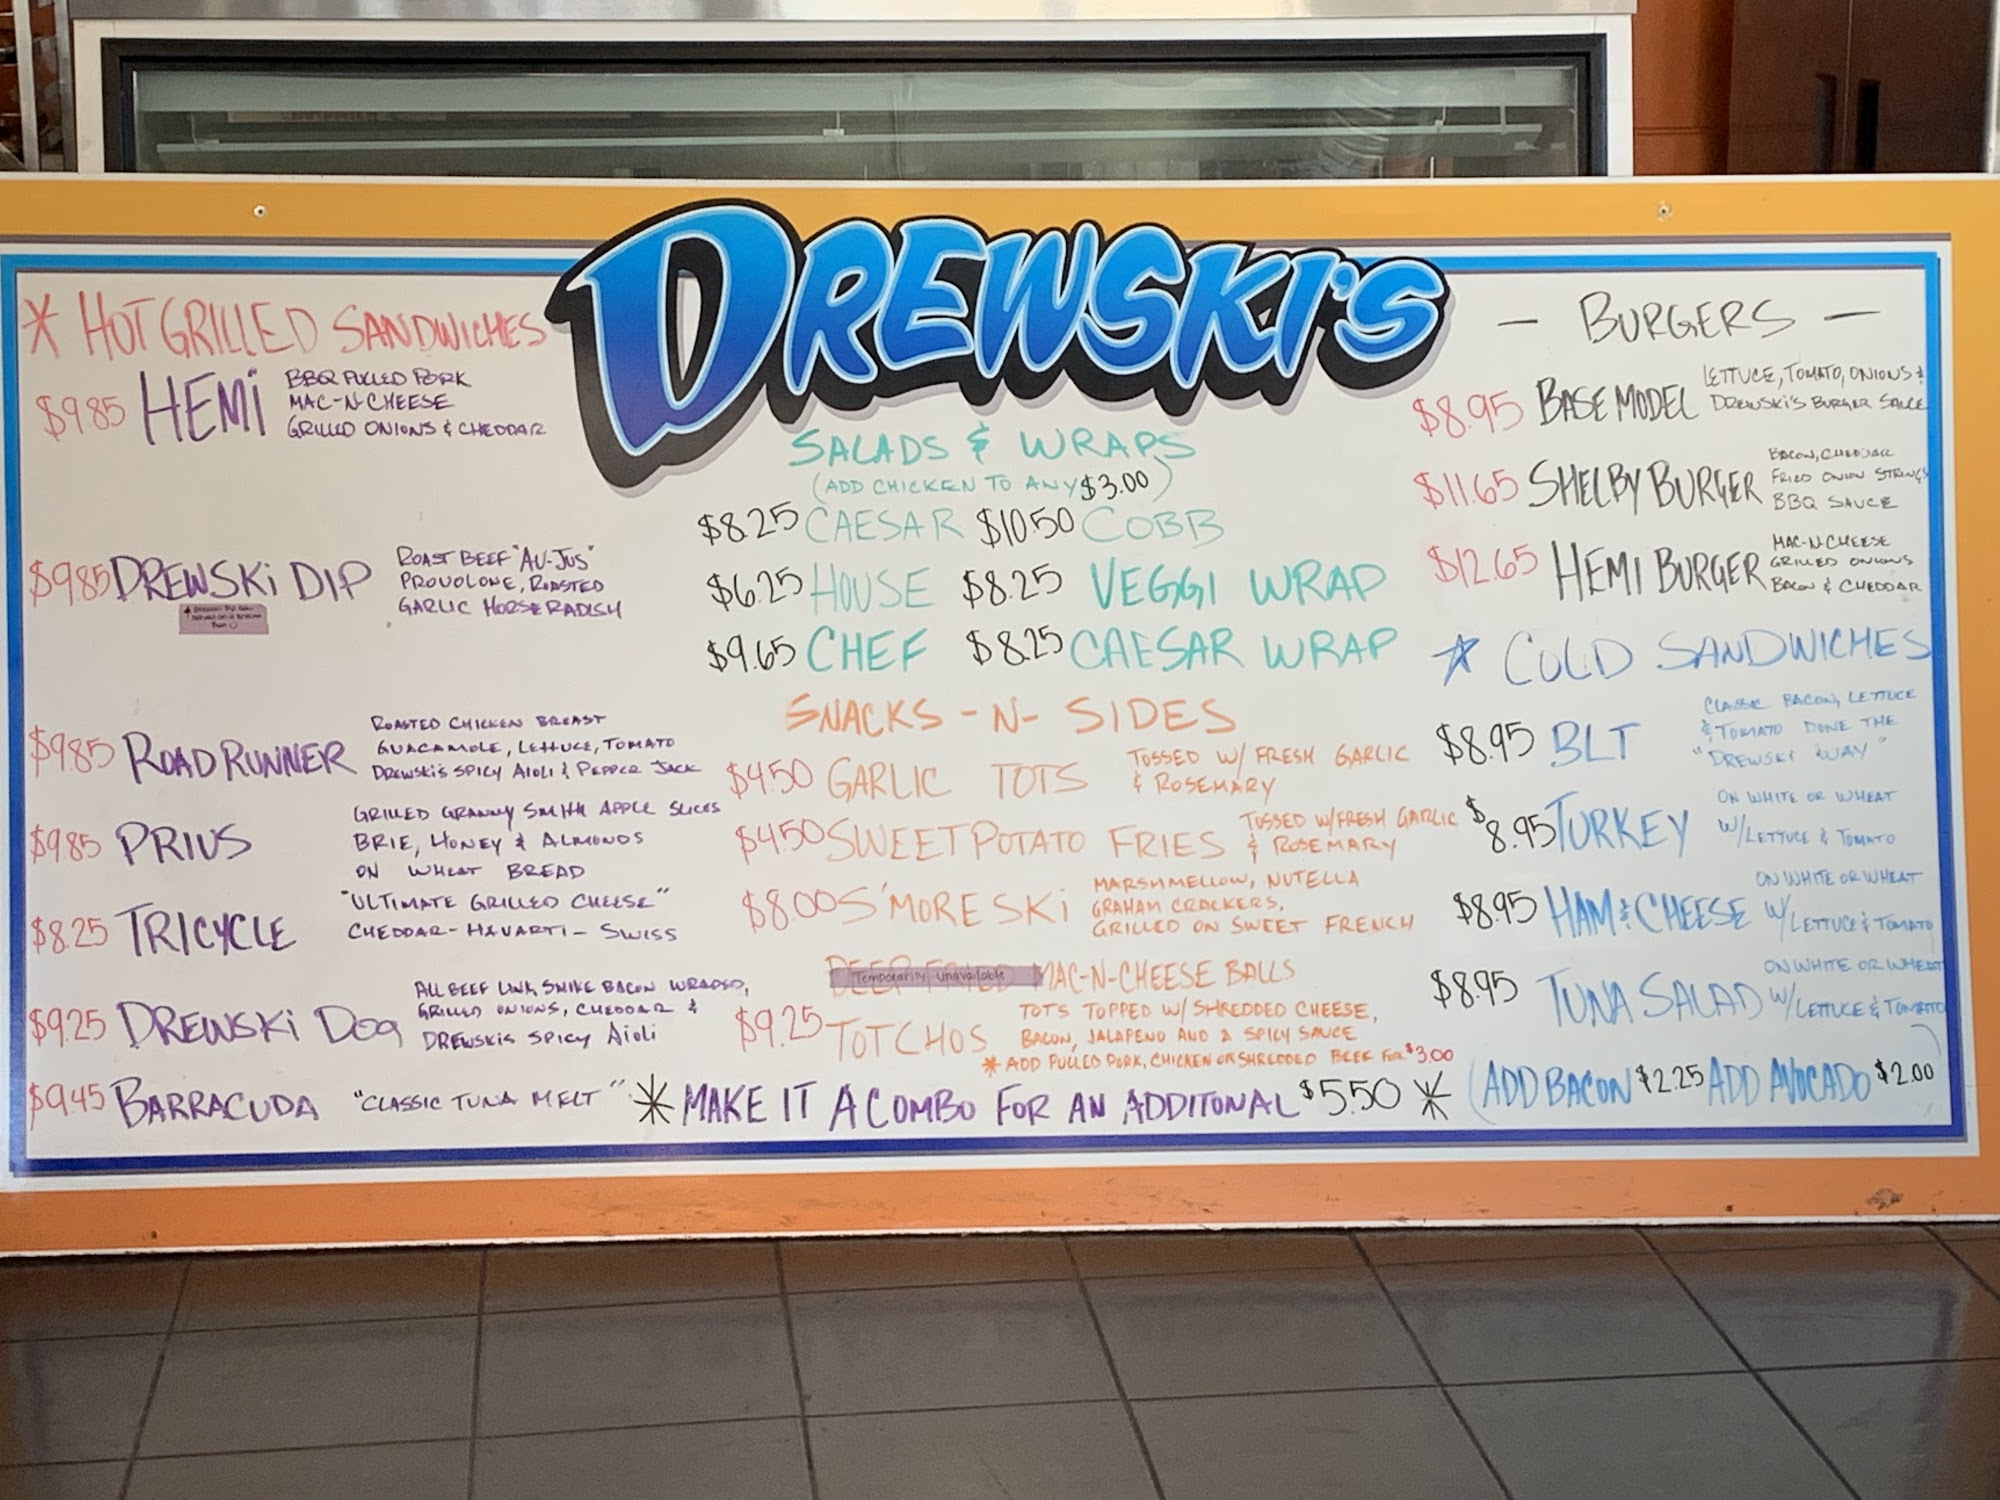 DREWSKI'S
* HOT GRILLED SANDWICHES
$9.85 HEMI
BBQ PULLED PORK
MAC-N-CHEESE
GRILLED ONIONS & CHEDDAR
$9.85 DREWSKI DIP
ROAST BEEF "AU-JUS"
PROVOLONE, ROASTED
GARLIC HORSERADISH
$9.85 ROAD RUNNER
ROASTED CHICKEN BREAST
GUACAMOLE, LETTUCE, TOMATO
DREWSKI'S SPICY AIOLI & PEPPER JACK
$9.85 PRIUS
GRILLED GRANNY SMITH APPLE SLICES
BRIE, HONEY & ALMONDS
ON WHEAT BREAD
$8.25 TRICYCLE
"ULTIMATE GRILLED CHEESE"
CHEDDAR-HAVARTI-SWISS
$9.25 DREWSKI DOG
ALL BEEF LINK, BACON WRAPPED,
GRILLED ONIONS, CHEDDAR &
DREWSKIS SPICY AIOLI
$9.45 BARRACUDA "CLASSIC TUNA MELT"
SALADS & WRAPS
(ADD CHICKEN TO ANY $3.00)
$8.25 CAESAR $10.50 COBB
$6.25 HOUSE $8.25 VEGGI WRAP
$9.65 CHEF $8.25 CAESAR WRAP
SNACKS -N- SIDES
$4.50 GARLIC TOTS
TOSSED W/ FRESH GARLIC
& ROSEMARY
$4.50 SWEET POTATO FRIES
TOSSED W/FRESH GARLIC
& ROSEMARY
$8.00 S'MORE SKI
MARSHMELLOW, NUTELLA
GRAHAM CRACKERS,
GRILLED ON SWEET FRENCH
DEEP FRIED MAC-N-CHEESE BALLS
Temporarily unavailable
$9.25 TOTCHOS
TOTS TOPPED W/ SHREDDED CHEESE,
BACON, JALAPENO AND A SPICY SAUCE
* ADD PULLED PORK, CHICKEN OR SHREDDED BEEF FOR $3.00
* MAKE IT A COMBO FOR AN ADDITONAL $5.50 *
- BURGERS -
$8.95 BASE MODEL
LETTUCE, TOMATO, ONIONS &
DREWSKI'S BURGER SAUCE
$11.65 SHELBY BURGER
BACON, CHEDDAR
FRIED ONION STRINGS
BBQ SAUCE
$12.65 HEMI BURGER
MAC-N-CHEESE
GRILLED ONIONS
BACON & CHEDDAR
* COLD SANDWICHES
$8.95 BLT
CLASSIC BACON, LETTUCE
& TOMATO DONE THE
"DREWSKI WAY"
$8.95 TURKEY
ON WHITE OR WHEAT
W/LETTUCE & TOMATO
$8.95 HAM & CHEESE
ON WHITE OR WHEAT
W/LETTUCE & TOMATO
$8.95 TUNA SALAD
ON WHITE OR WHEAT
W/LETTUCE & TOMATO
(ADD BACON $2.25 ADD AVOCADO $2.00